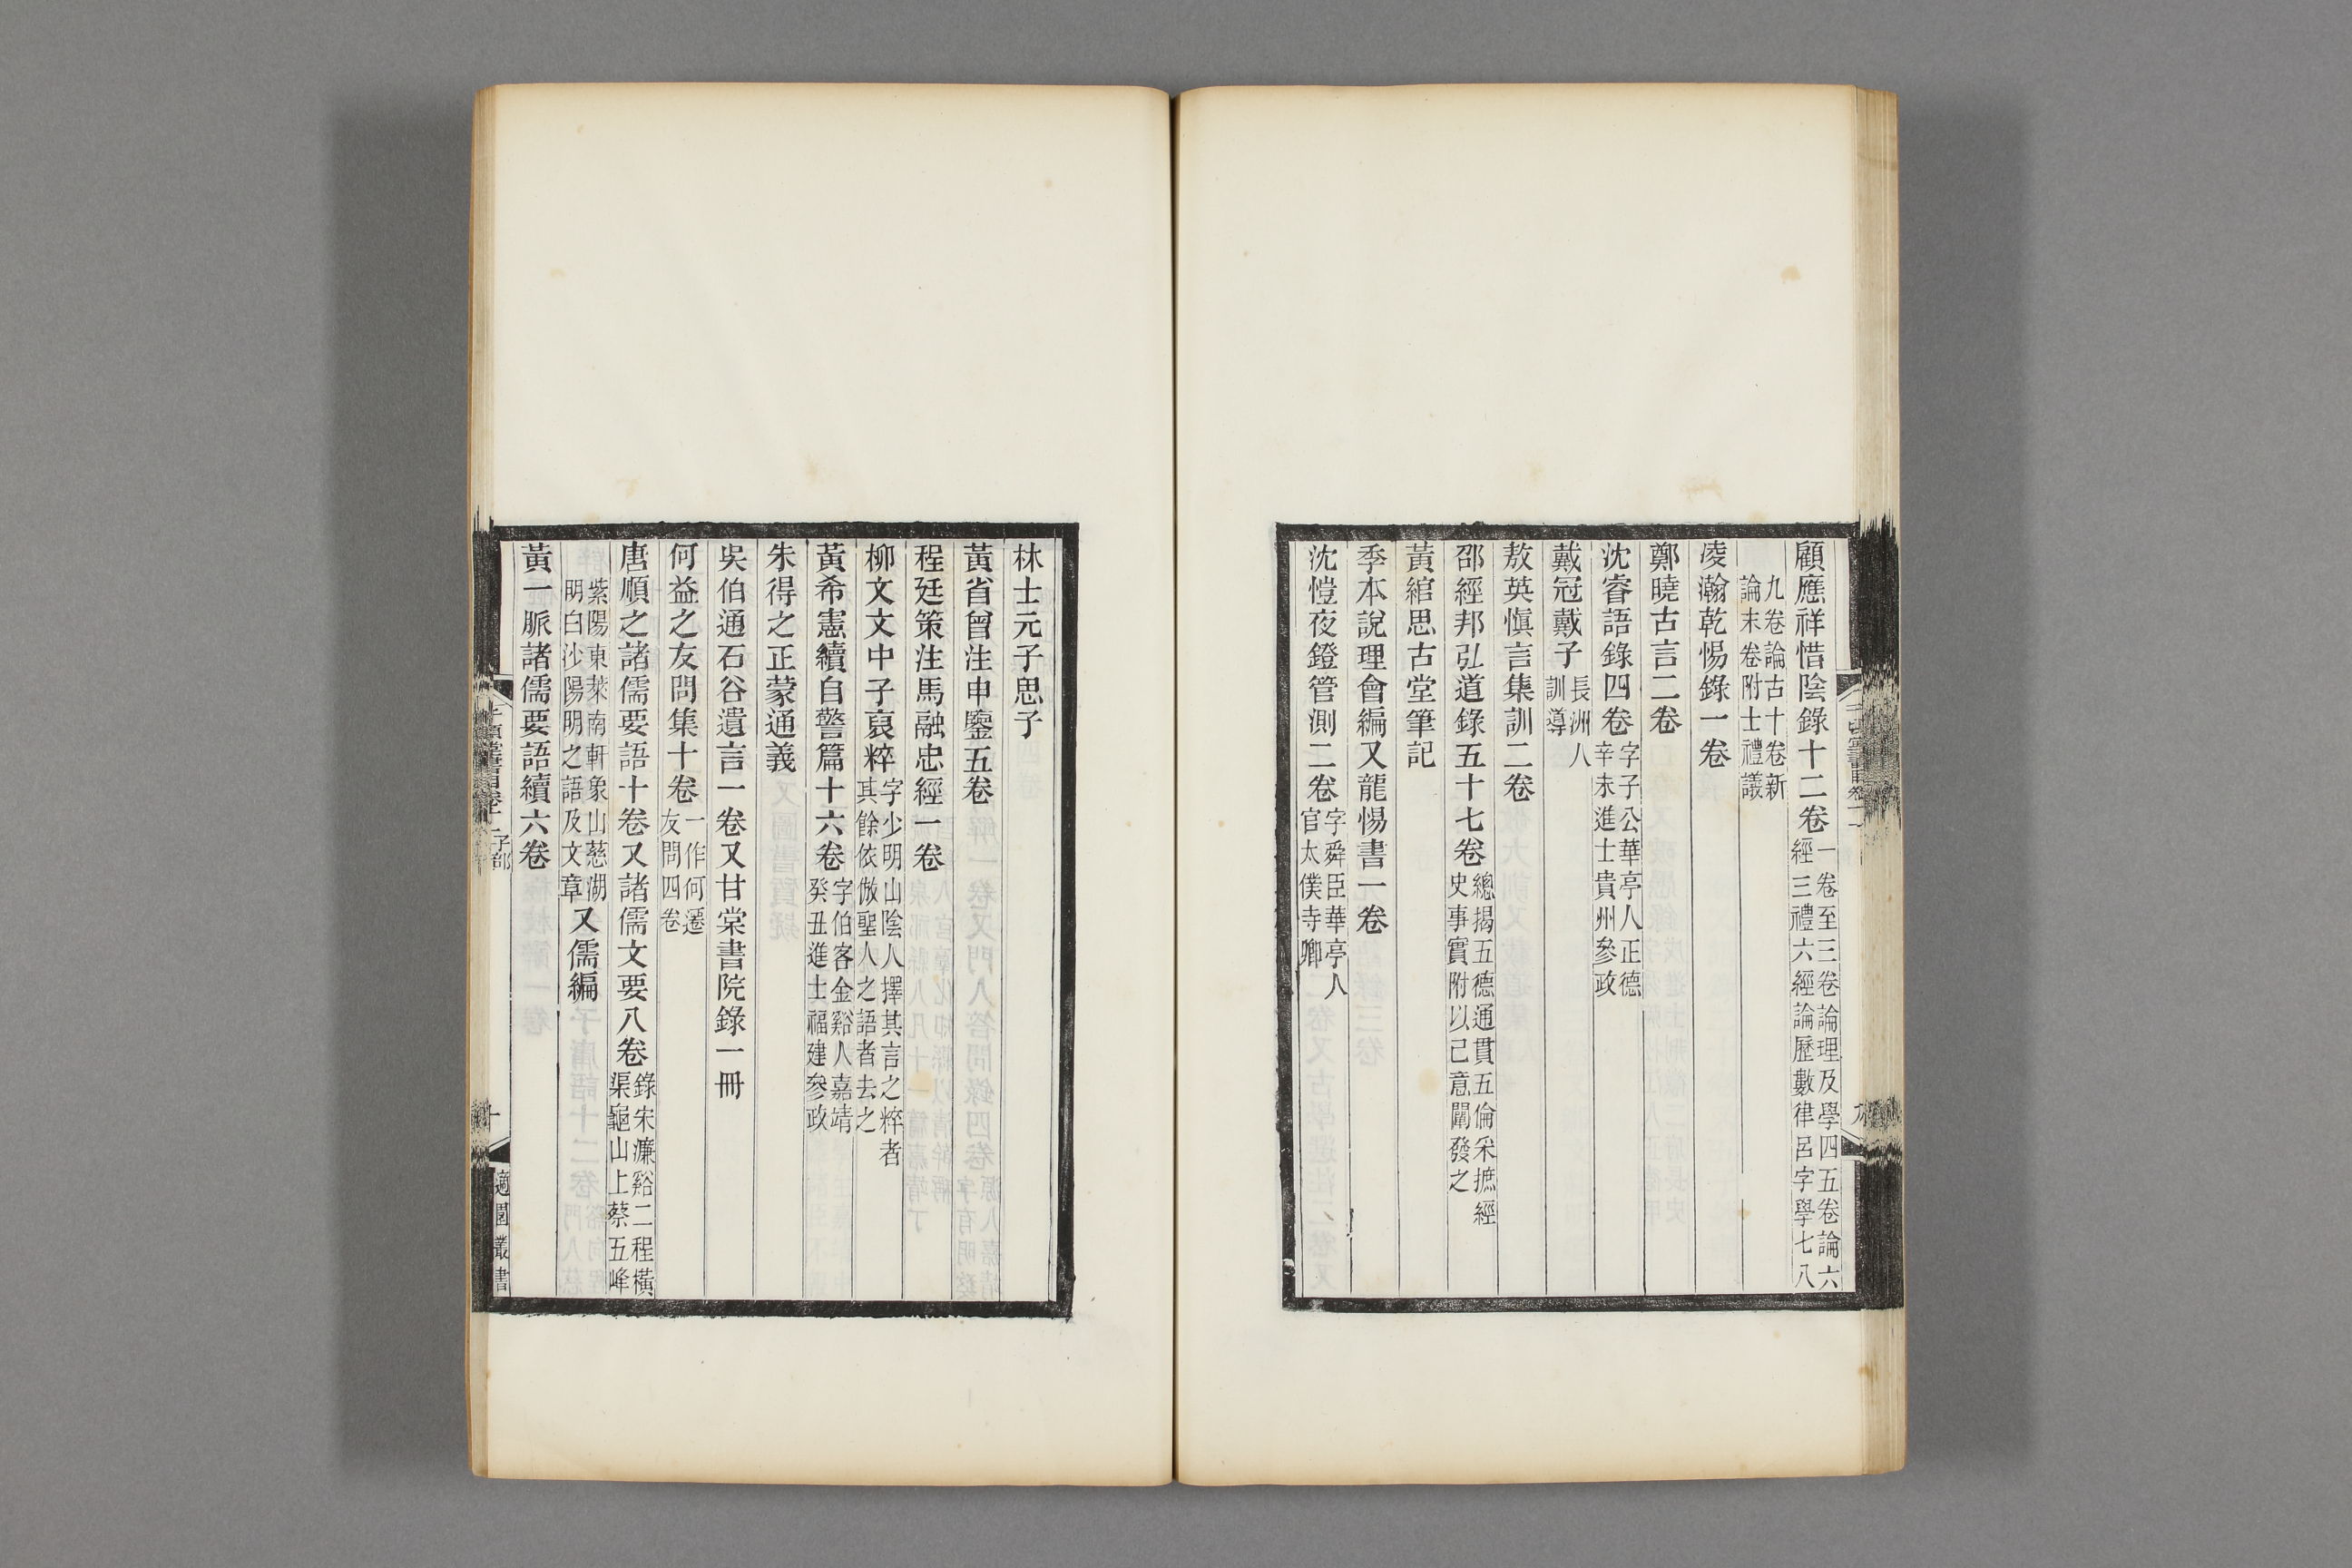 顧應祥惜陰錄十二卷一卷至三卷論理及學四五卷論六經三禮六經論歷數律呂字學七八
九卷論古十卷新論末卷附士禮議
凌瀚乾惕錄一卷
鄭曉古言二卷
沈睿語錄四卷字子公華亭人正德辛未進士貴州參政
戴冠戴子長洲人訓導
敖英慎言集訓二卷
邵經邦弘道錄五十七卷總揭五德通貫五倫采摭經史事實附以己意闡發之
黃綰思古堂筆記
季本說理會編又龍惕書一卷
沈愷夜鐙管測二卷字舜臣華亭人官太僕寺卿
林士元子思子
黃省曾注申鑒五卷
程廷策注馬融忠經一卷
柳文文中子裒粹字少明山陰人擇其言之粹者其餘依倣聖人之語者去之
黃希憲續自警篇十六卷字伯客金谿人嘉靖癸丑進士福建參政
朱得之正蒙通義
吳伯通石谷遺言一卷又甘棠書院錄一冊
何益之友問集十卷一作何遷友問四卷
唐順之諸儒要語十卷又諸儒文要八卷錄宋濂谿二程橫渠龜山上蔡五峰
紫陽東萊南軒象山慈湖明白沙陽明之語及文章又儒編
黃一脈諸儒要語續六卷
千頃堂書目卷十一 子部
十
適園叢書